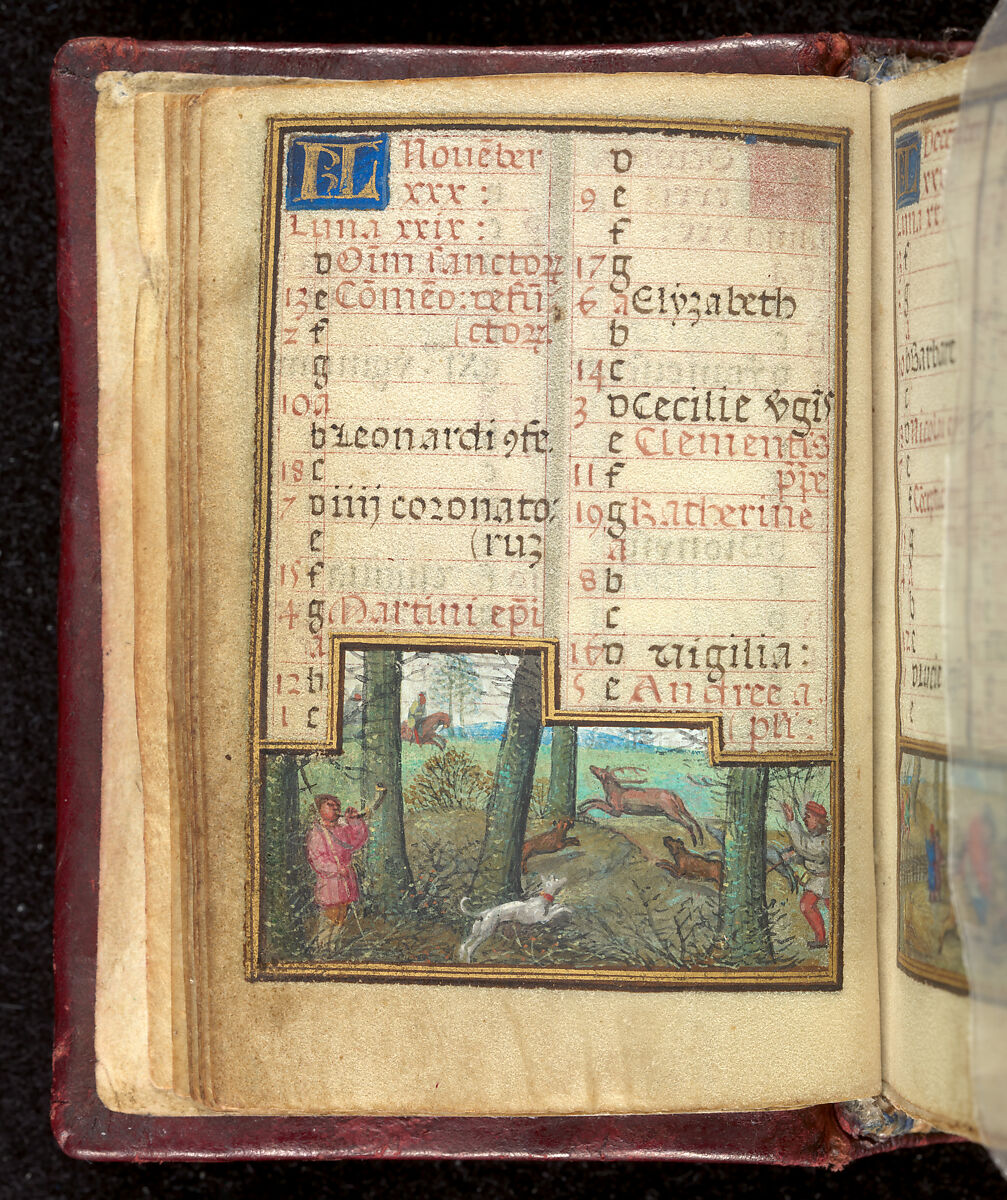 KL Nouēber
xxx :
Luna xxix :
d Oīm sanctoꝝ
13 e Cōmēo : defū
2 f (ctoꝝ
g
10 a
b Leonardi ꝯfe.
18 c
7 d iiii coronato:
e (ruʒ
15 f
4 g Martini ep̄i
a
12 b
1 c
d
9 e
f
17 g
6 a Elyzabeth
b
14 c
3 d Cecilie v̄gīs
e Clementis
11 f pp̄e
19 g Katherine
a
8 b
c
16 d Vigilia :
5 e Andree a
(pl̄i :
KL
f
g
Barbare
e
Nicolai
e
g
b
e
Lucie
e